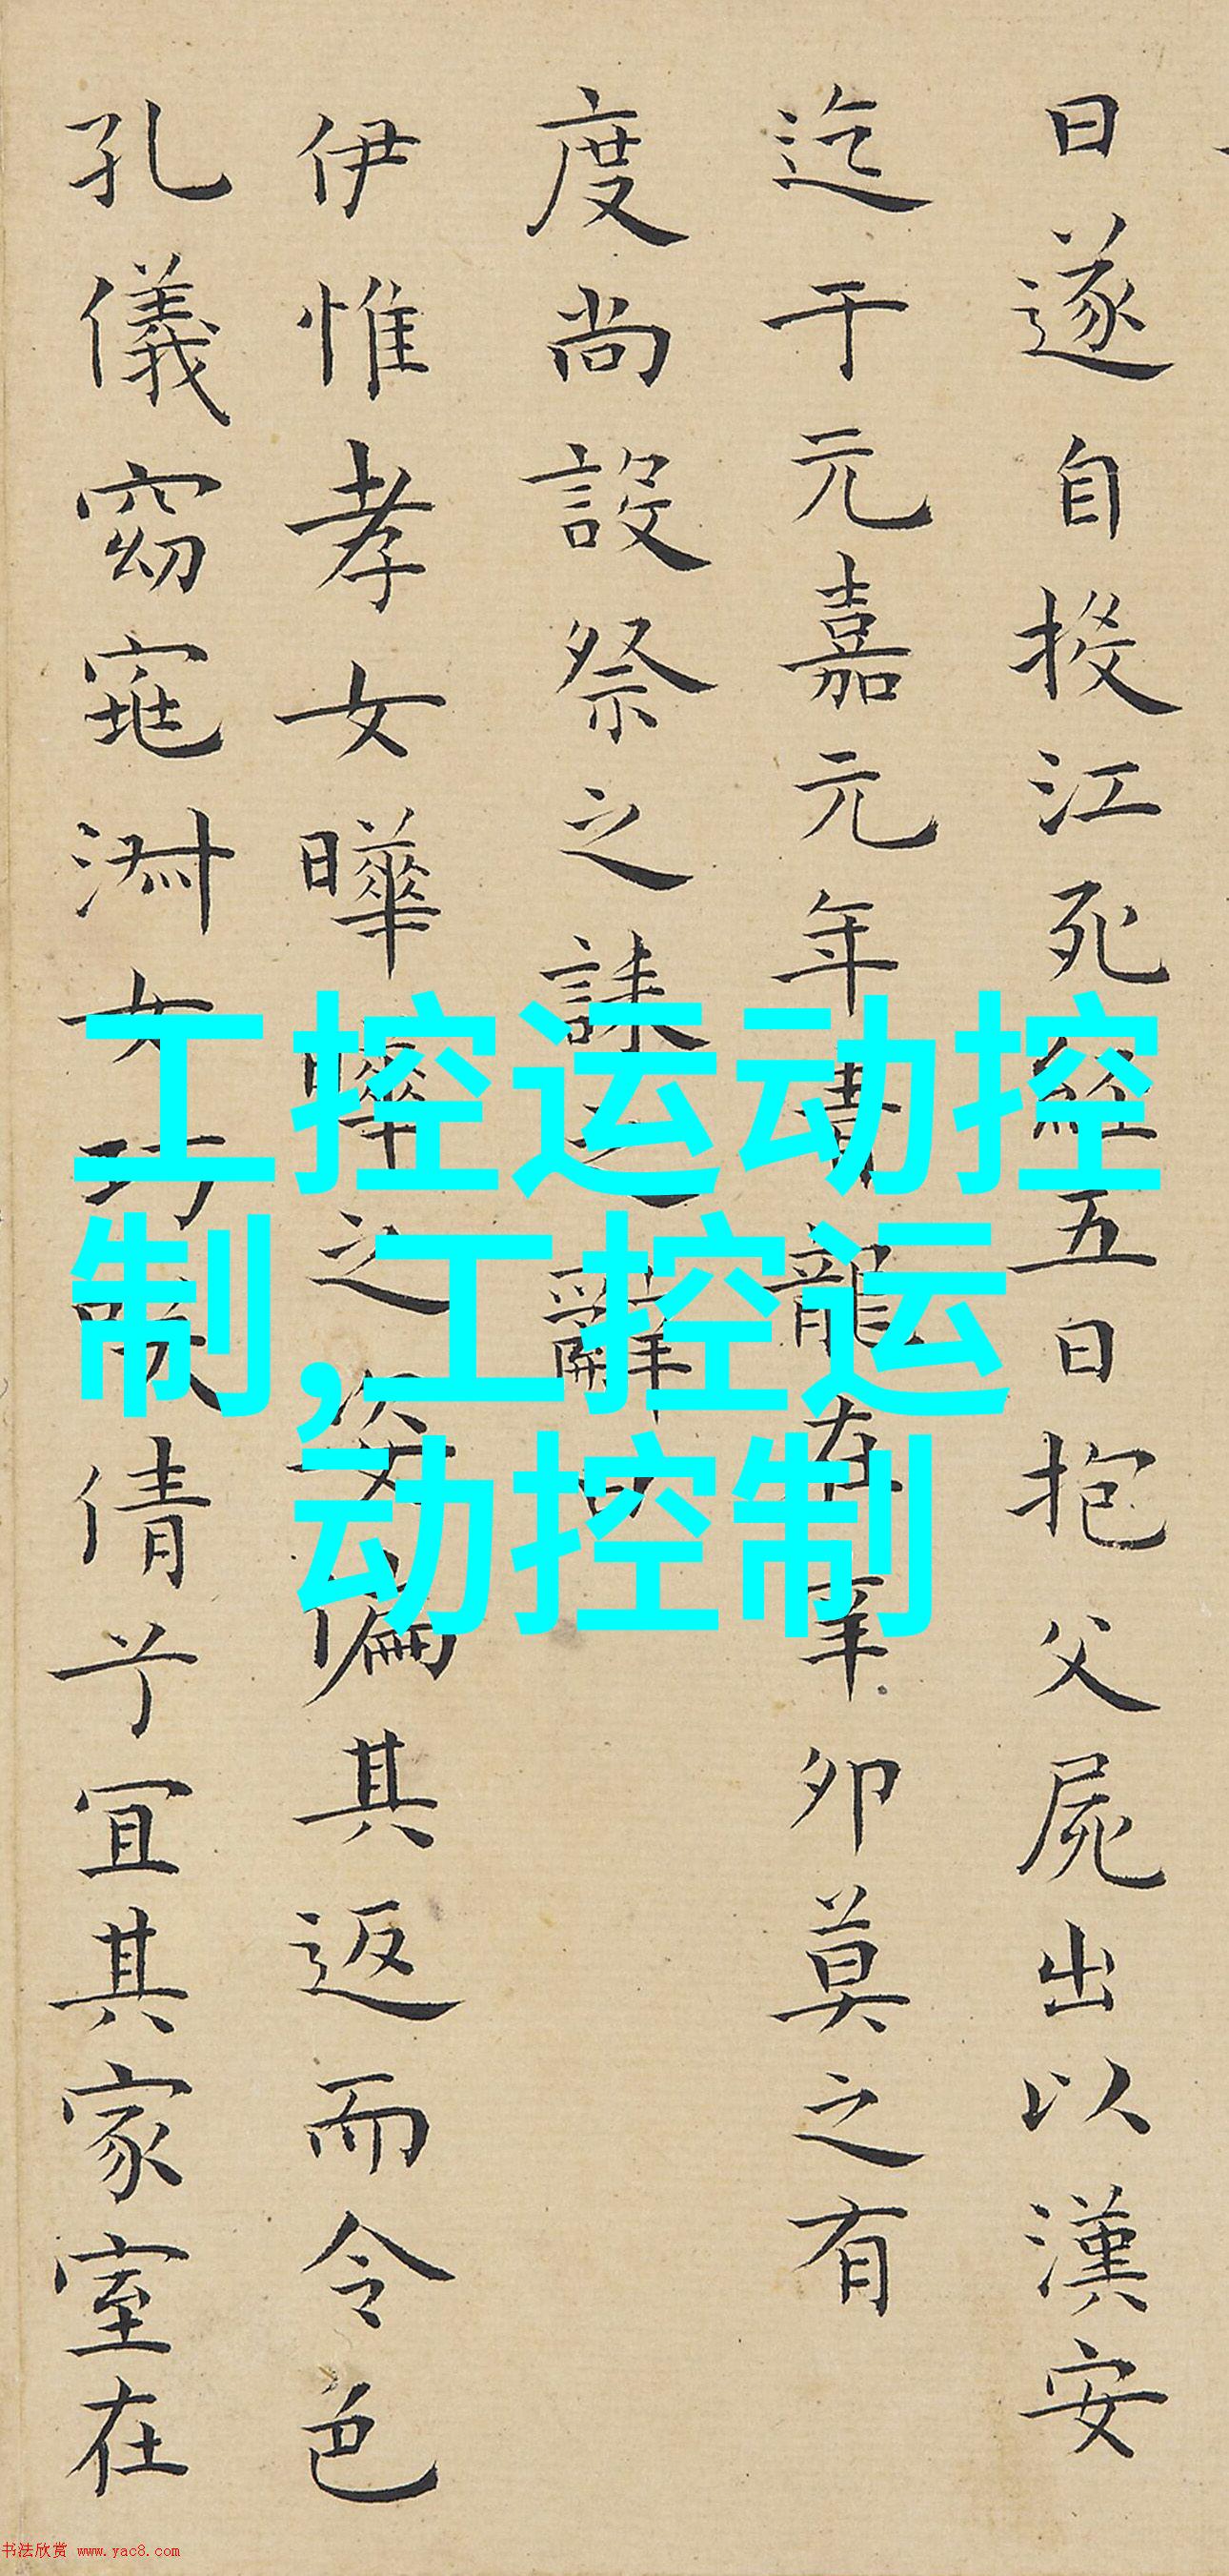 日遂自投江死經五日抱父屍出以漢安
迄于元嘉元年青龍在辛卯莫之有
度尚設祭之誄之辭曰
伊惟孝女曄曄之姿偏其返而令色
孔儀窈窕淑女巧咲倩兮宜其家室在
工控运动控
制,工控运
动控制
书法欣赏 www.yac8.com